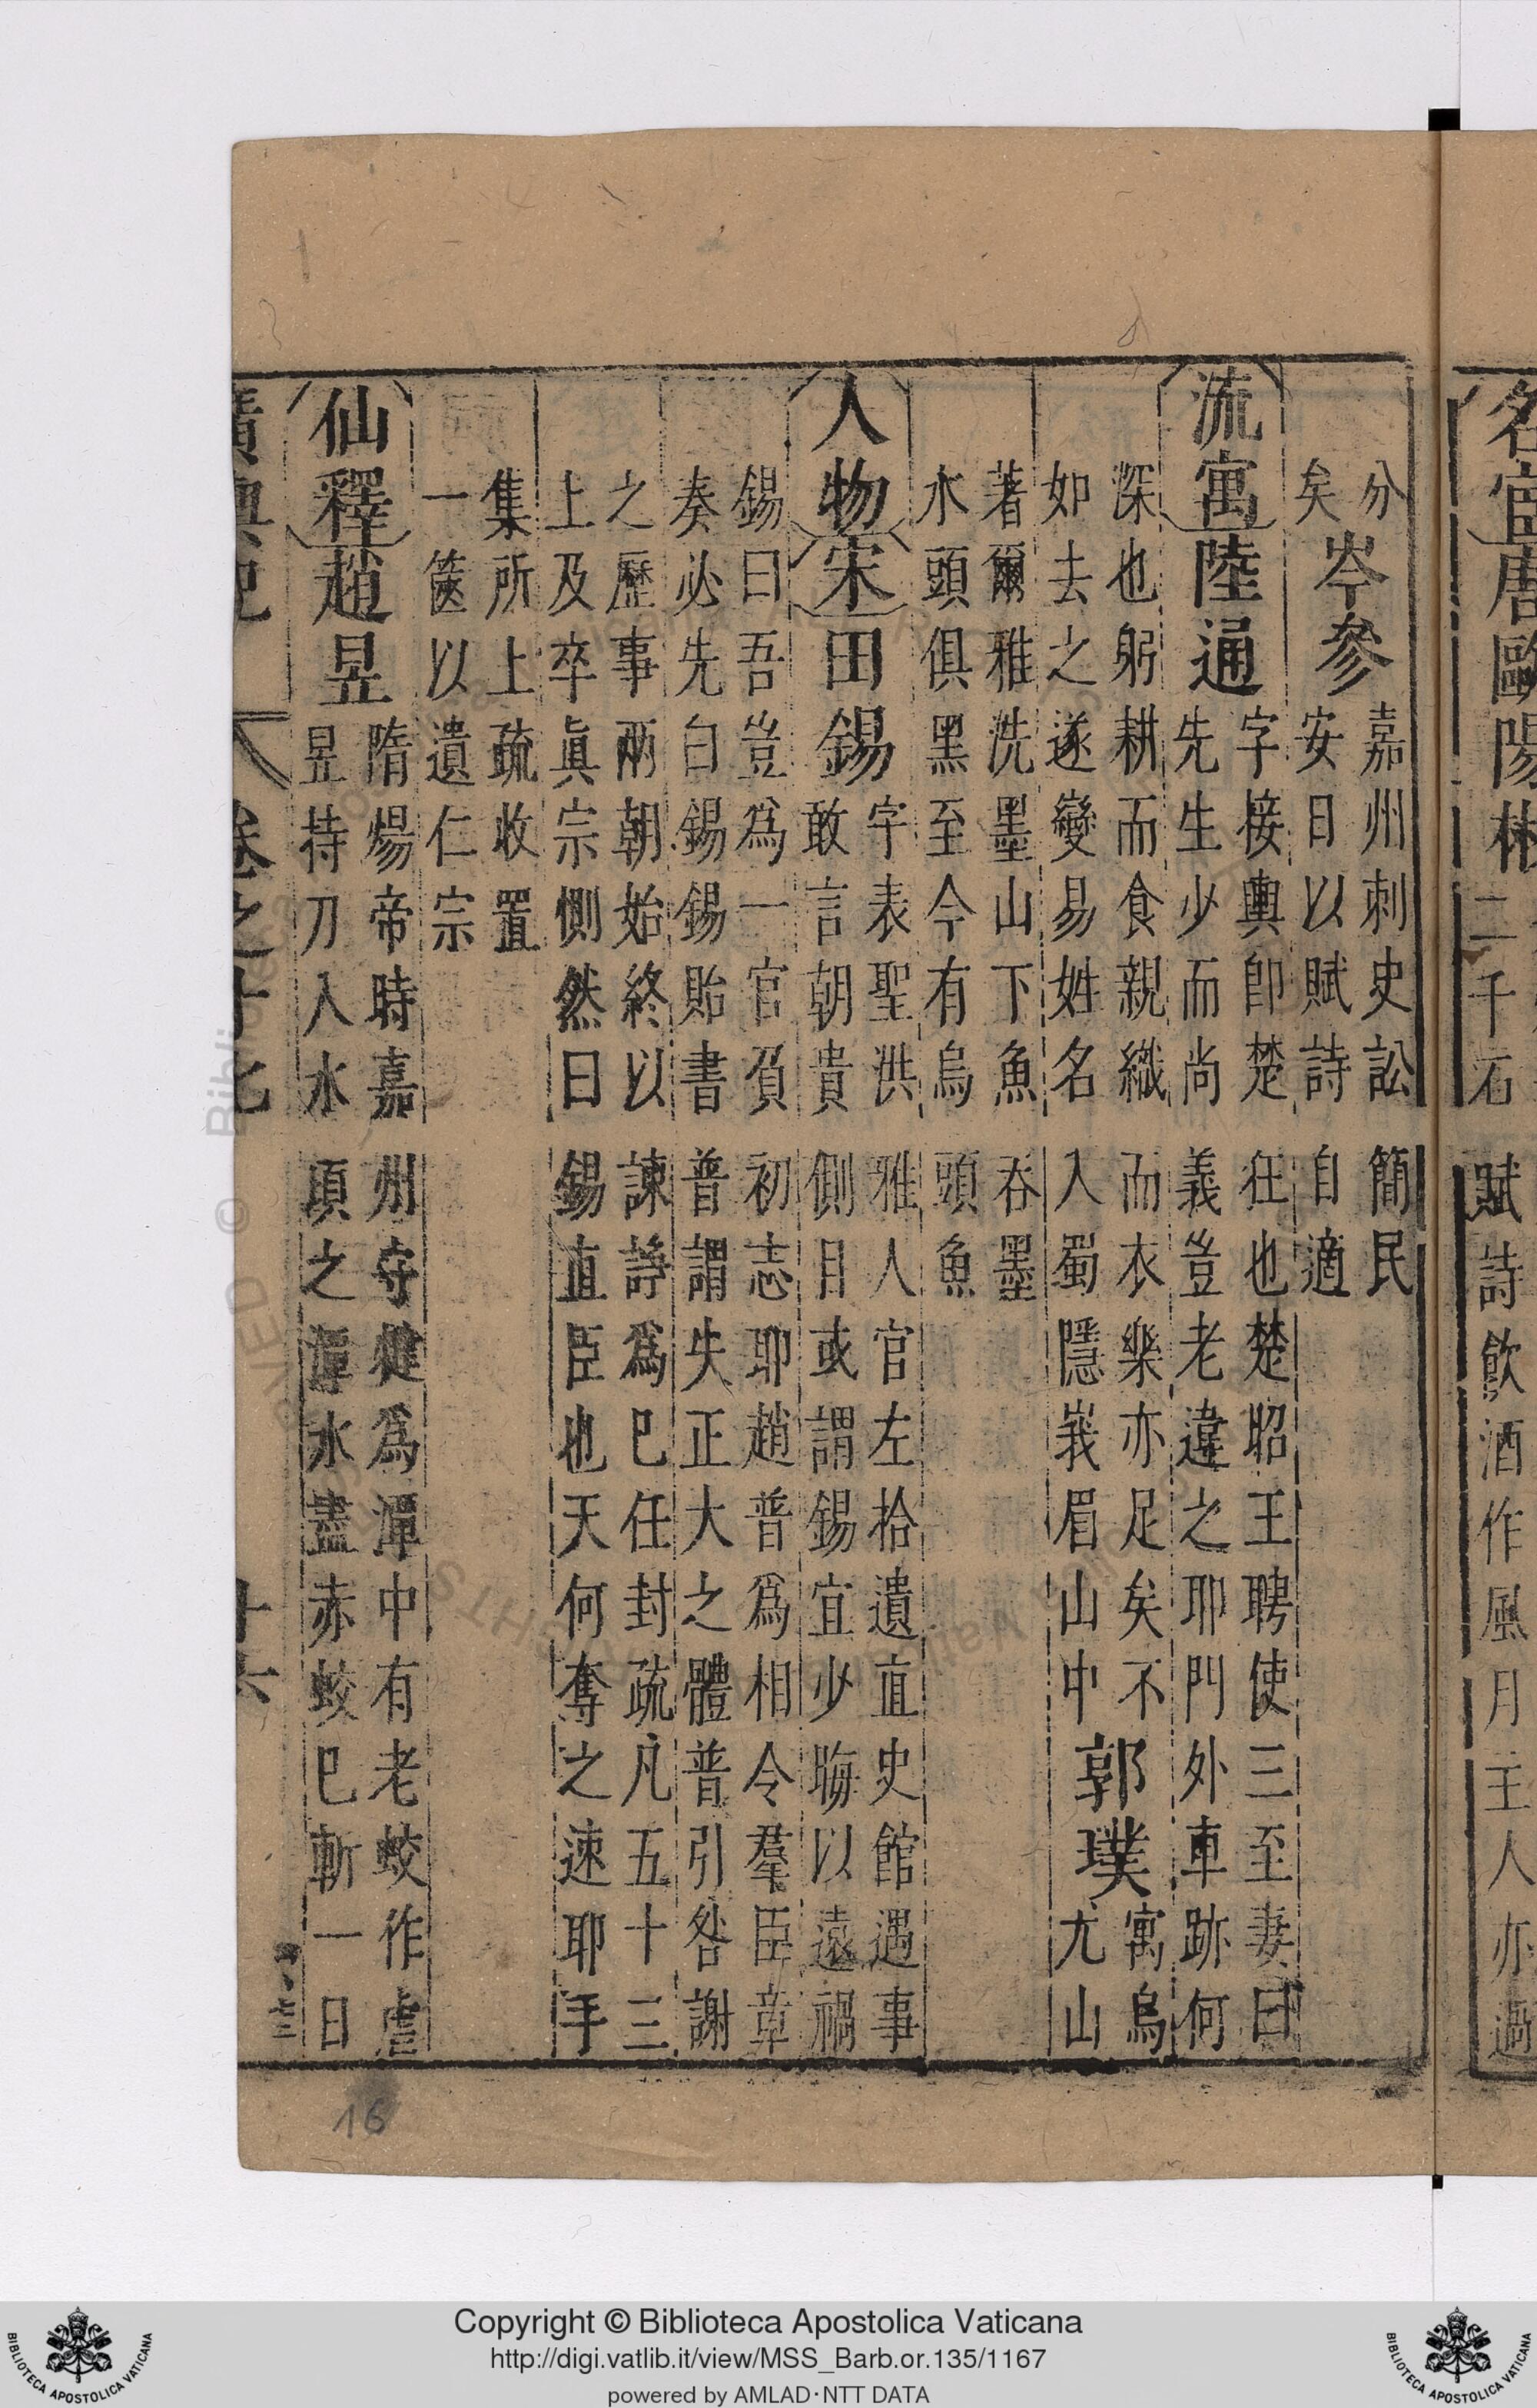 名宦唐歐陽彬
二千石賦詩飲酒作風月主人亦過
分
矣
岑參
嘉州刺史訟簡民
安日以賦詩自適
流寓陸通
字接輿即楚狂也楚昭王聘使三至妻曰
先生少而尚義豈老違之耶門外車跡何
深也躬耕而食親織而衣樂亦足矣不
如去之遂變易姓名入蜀隱峩眉山中
郭璞
寓烏
尤山
著爾雅洗墨山下魚吞墨
水頭俱黑至今有烏頭魚
人物宋田錫
字表聖洪雅人官左拾遺直史館遇事
敢言朝貴側目或謂錫宜少晦以遠禍
錫曰吾豈爲一官負初志耶趙普爲相令羣臣章
奏必先白錫錫貽書普謂失正大之體普引咎謝
之歷事兩朝始終以諫諍爲巳任封疏凡五十三
上及卒眞宗惻然曰錫直臣也天何奪之速耶手
集所上疏收置
一篋以遺仁宗
仙釋趙昱
隋煬帝時嘉州守犍爲潭中有老蛟作虐
昱持刀入水頃之潭水盡赤蛟巳斬一日
廣輿記 卷之十七 十六
16
Copyright © Biblioteca Apostolica Vaticana
http://digi.vatlib.it/view/MSS_Barb.or.135/1167
powered by AMLAD·NTT DATA
BIBLIOTECA APOSTOLICA VATICANA
BIBLIOTECA APOSTOLICA VATICANA